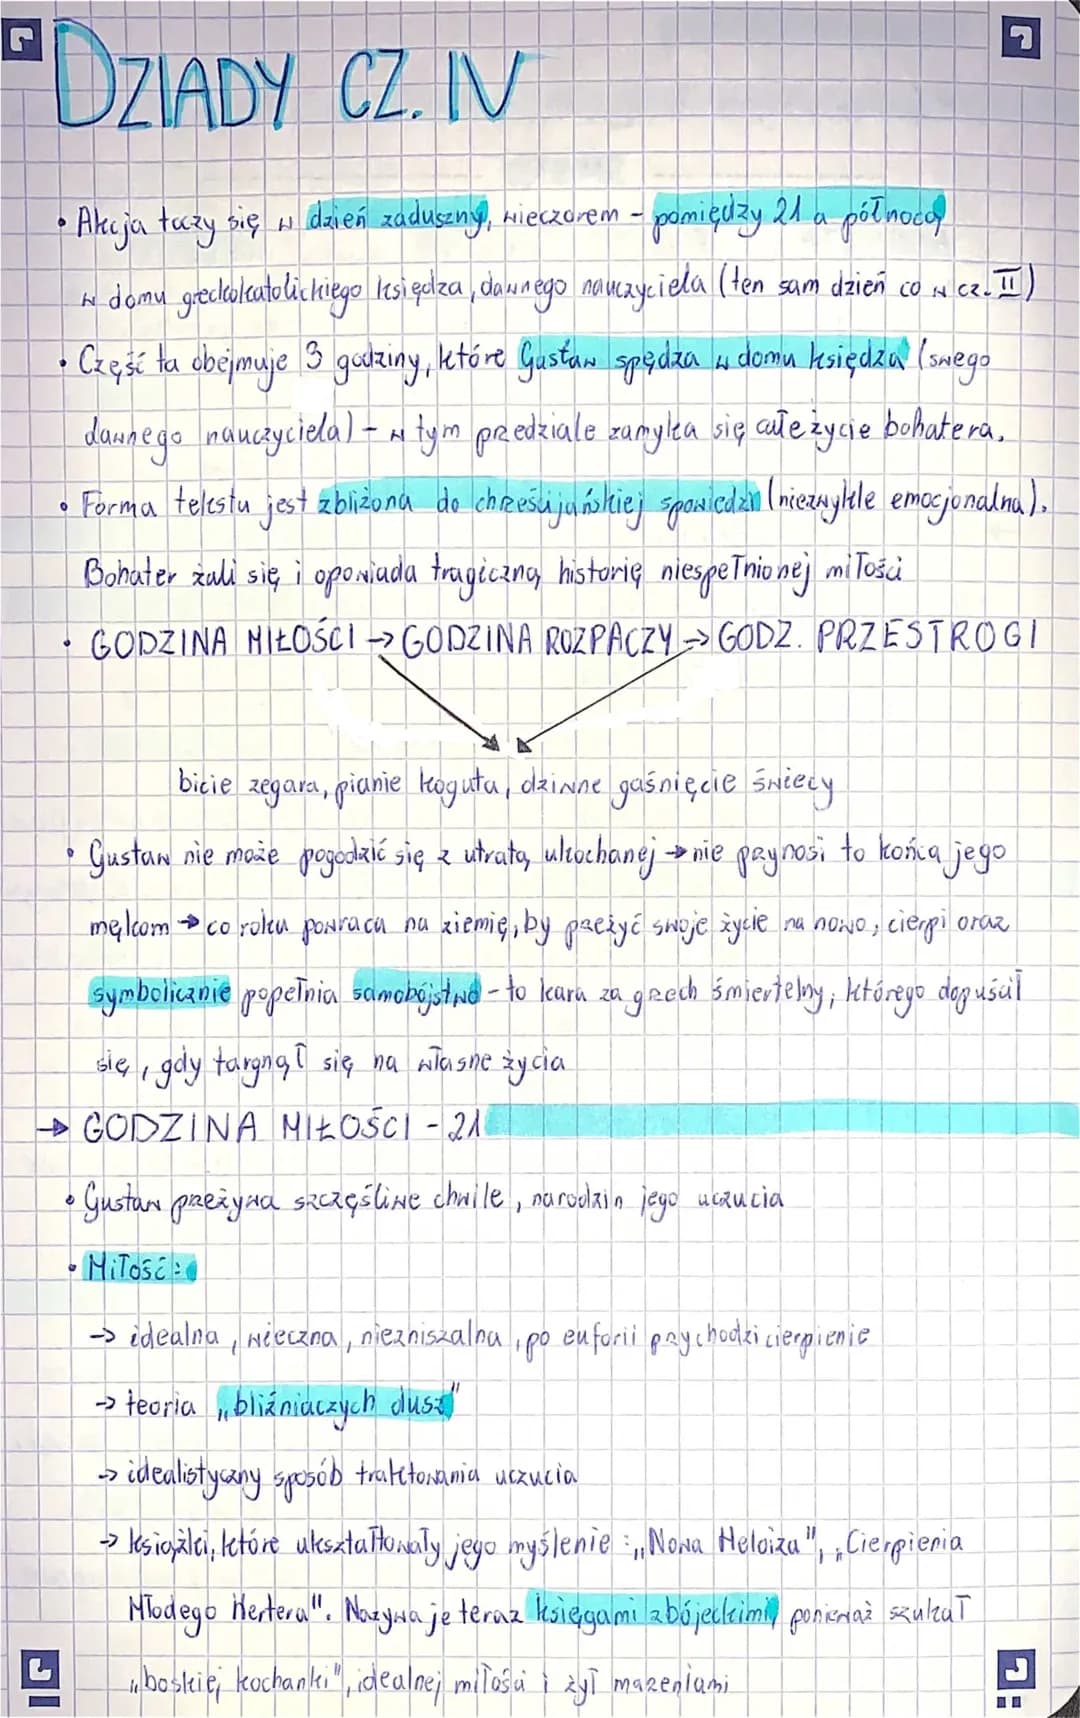 DZIADY CZ. IV
• Akcja toczy się w dzień zaduszny, wieczorem - pomiędzy 21 a północą
w domu greckokatolickiego księdza, dawnego nauczyciela (ten sam dzień co w cz. II)
• Część ta obejmuje 3 godziny, które Gustaw spędza w domu księdza (swego
dawnego nauczyciela) - w tym przedziale zamyka się całe życie bohatera.
• Forma tekstu jest zbliżona do chrześcijańskiej spowiedzi (niezwykle emocjonalna).
Bohater żali się i opowiada tragiczną historię niespełnionej miłości
• GODZINA MIŁOŚCI → GODZINA ROZPACZY → GODZ. PRZESTROGI
bicie zegara, pianie koguta, dziwne gaśnięcie świecy
• Gustaw nie może pogodzić się z utratą ukochanej → nie przynosi to końca jego
mękom → co roku powraca na ziemię, by przeżyć swoje życie na nowo, cierpi oraz
symbolicznie popełnia samobójstwo - to kara za grzech śmiertelny, którego dopuścił
się, gdy targnął się na własne życia
→ GODZINA MIŁOŚCI - 21
• Gustaw przeżywa szczęśliwe chwile, narodzin jego uczucia
• Miłość:
→ idealna, wieczna, niezniszalna, po euforii przychodzi cierpienie
→ teoria „bliźniaczych dusz"
→ idealistyczny sposób traktowania uczucia
→ książki, które ukształtowały jego myślenie: „Nowa Heloiza", „Cierpienia
Młodego Wertera". Nazywa je teraz księgami zbójeckimi, ponieważ szukał
„boskiej kochanki", idealnej miłości i żył marzeniami